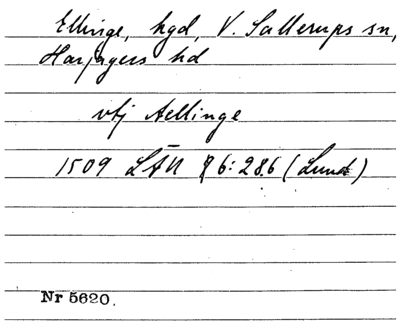 Ellinge, hgd, V. Sallerups sn,
Harjagers hd
vbj Aellinge
1509 LÄU 6:286 (Lund)
Nr 5620.